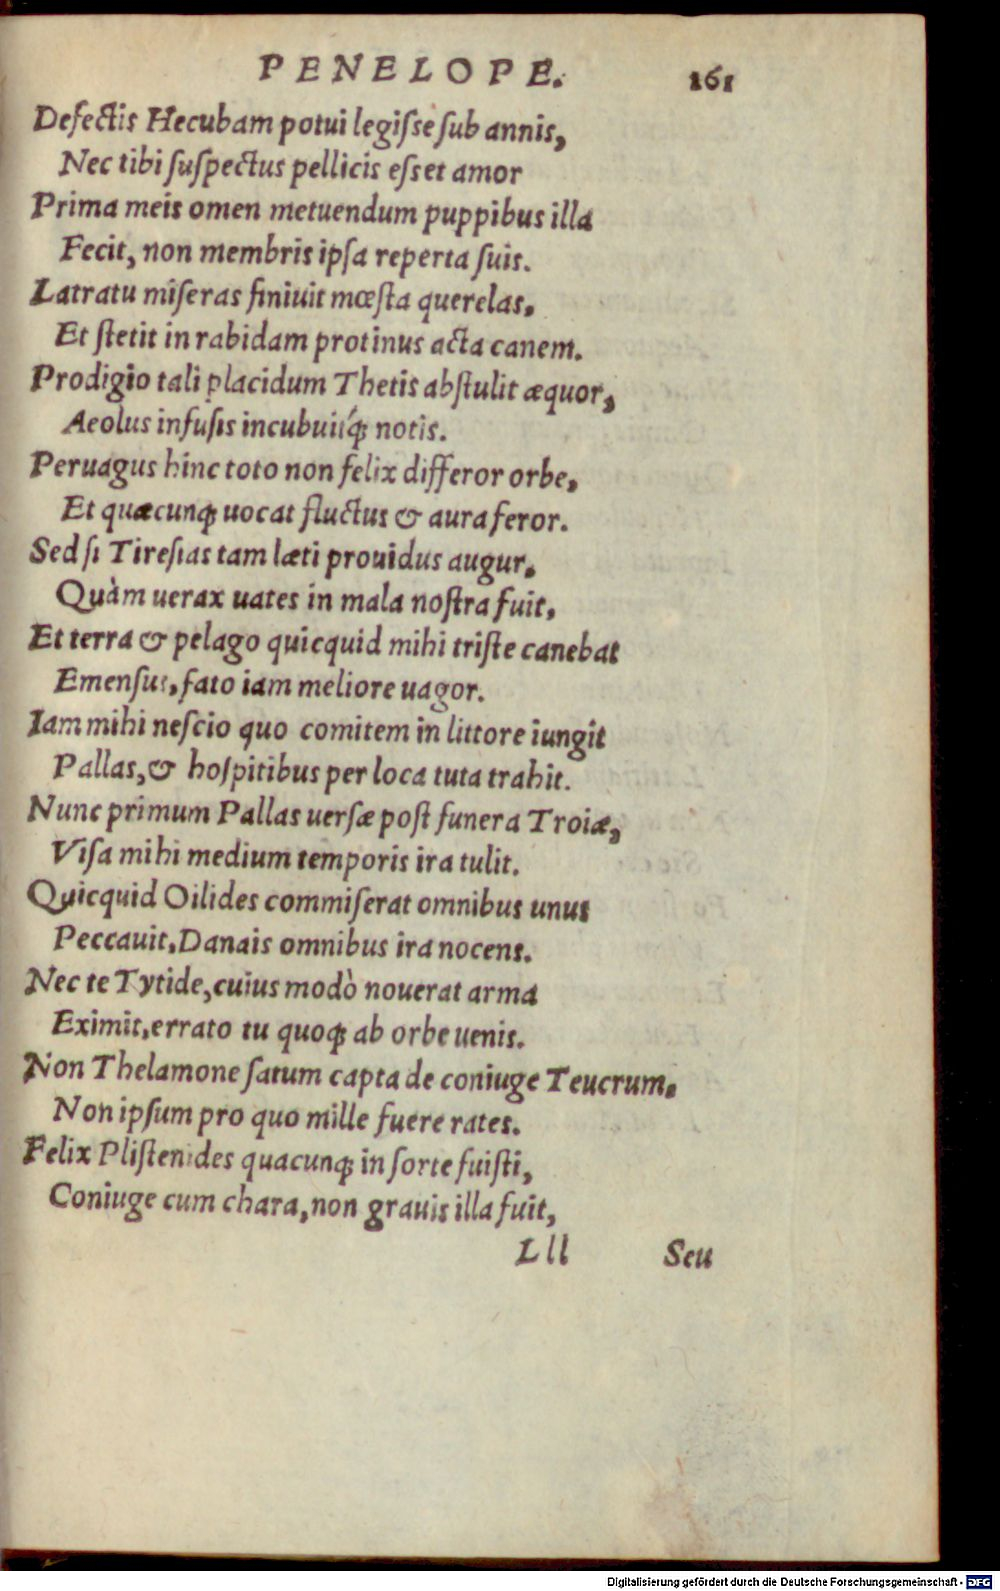 PENELOPE. 161
Defectis Hecubam potui legiſſe ſub annis,
Nec tibi ſuſpectus pellicis eſſet amor
Prima meis omen metuendum puppibus illa
Fecit, non membris ipſa reperta ſuis.
Latratu miſeras finiuit mœſta querelas,
Et ſtetit in rabidam protinus acta canem.
Prodigio tali placidum Thetis abſtulit æquor,
Aeolus infuſis incubuitq́ꝫ notis.
Peruagus hinc toto non felix differor orbe,
Et quæcunqꝫ uocat fluctus & aura feror.
Sed ſi Tireſias tam læti prouidus augur,
Quàm uerax uates in mala noſtra fuit,
Et terra & pelago quicquid mihi triſte canebat
Emenſus, fato iam meliore uagor.
Iam mihi neſcio quo comitem in littore iungit
Pallas, & hoſpitibus per loca tuta trahit.
Nunc primum Pallas uerſæ poſt funera Troiæ,
Viſa mihi medium temporis ira tulit.
Quicquid Oilides commiſerat omnibus unus
Peccauit, Danais omnibus ira nocens.
Nec te Tytide, cuius modò nouerat arma
Eximit, errato tu quoqꝫ ab orbe uenis.
Non Thelamone ſatum capta de coniuge Teucrum,
Non ipſum pro quo mille fuere rates.
Felix Pliſtenides quacunqꝫ in ſorte fuiſti,
Coniuge cum chara, non grauis illa fuit,
Lll Seu
Digitalisierung gefördert durch die Deutsche Forschungsgemeinschaft - DFG